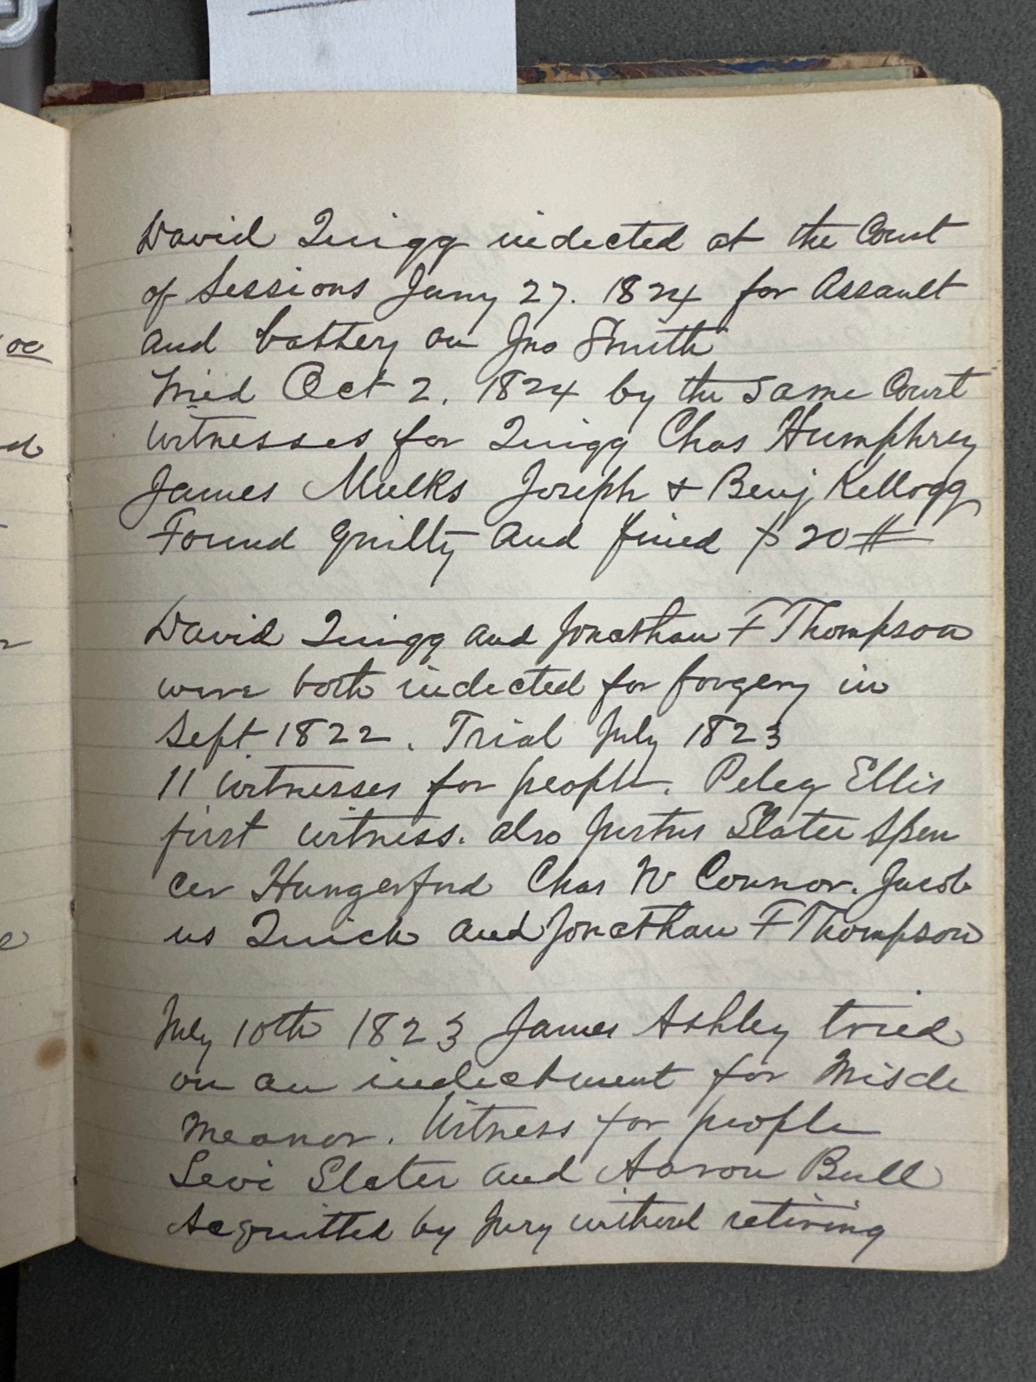 David Quigg indected at the Court
of Sessions Jany 27. 1824 for Assault
and battery on Jno Smith
Tried Oct 2. 1824 by the same Court
Witnesses for Quigg Chas Humphrey
James Mulks Joseph & Benj Kellogg
Found guilty and fined $20
David Quigg and Jonathan F Thompson
were both indected for forgery in
Sept 1822. Trial July 1823
11 Witnesses for people. Peleg Ellis
first witness. also Justus Slater Spen
cer Hungerford Chas W Connor. Jacob
us Quick and Jonathan F Thompson
July 10th 1823 James Ashley tried
on an indectment for Misde
meanor. Witness for people
Levi Slater and Aaron Bull
Acquitted by Jury without retiring